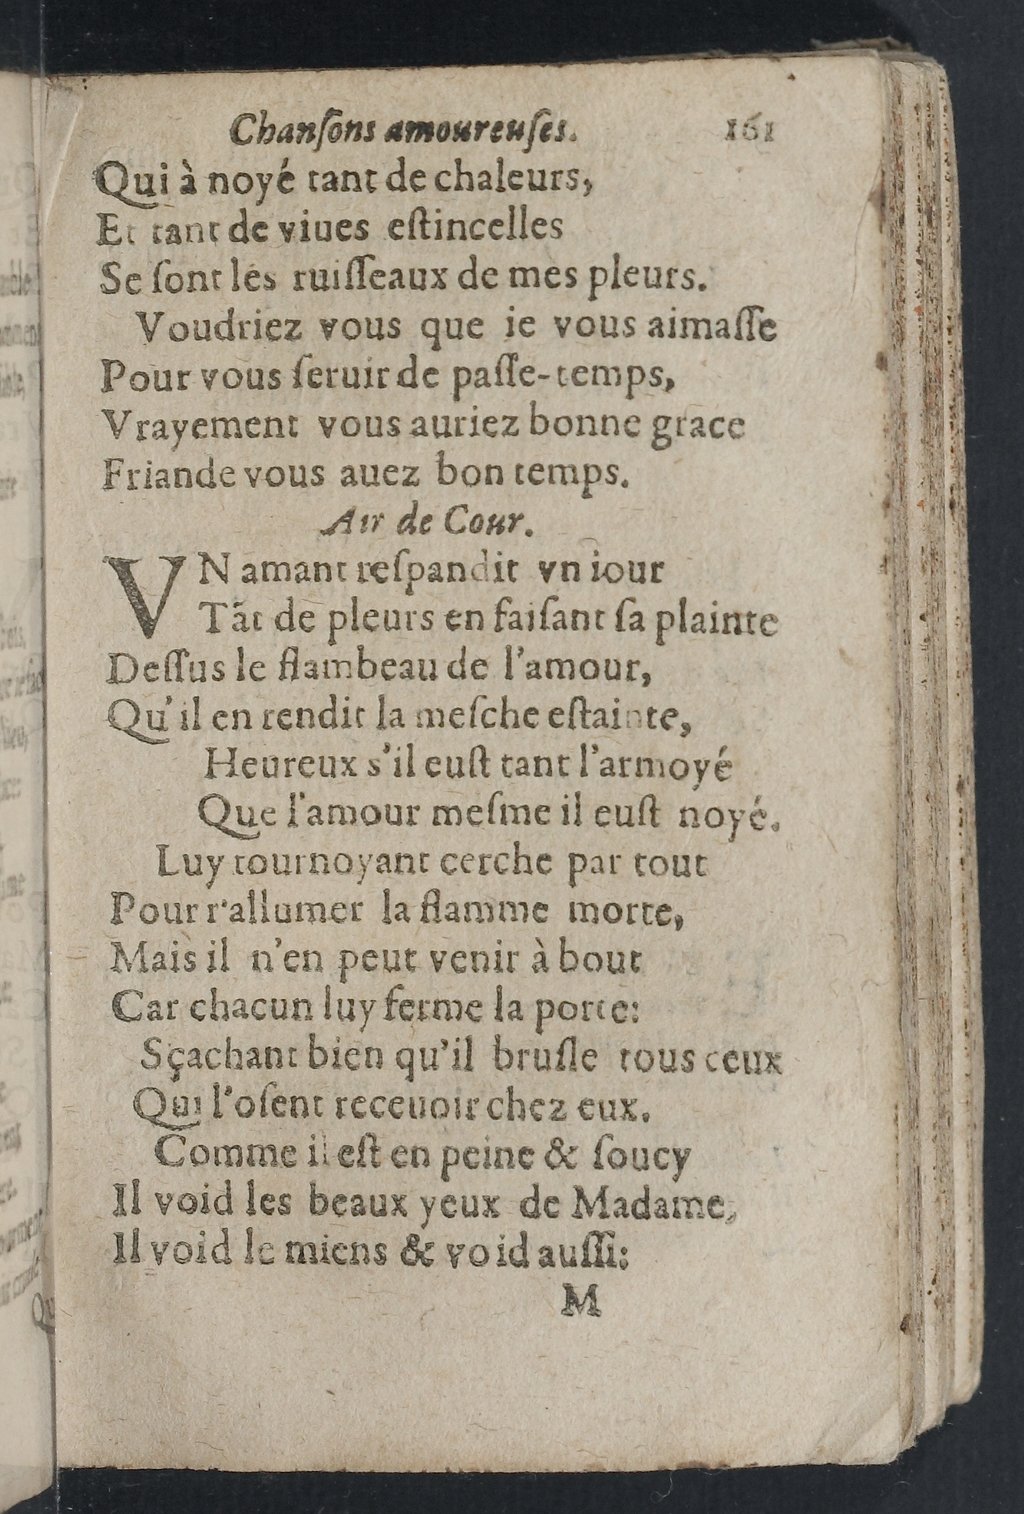 Chanſons amoureuſes. 161
Qui à noyé tant de chaleurs,
Et tant de viues eſtincelles
Se ſont les ruiſſeaux de mes pleurs.
Voudriez vous que ie vous aimaſſe
Pour vous ſeruir de paſſe-temps,
Vrayement vous auriez bonne grace
Friande vous auez bon temps.
Air de Cour.
VN amant reſpandit vn iour
Tãt de pleurs en faiſant ſa plainte
Deſſus le flambeau de l'amour,
Qu'il en rendit la meſche eſtainte,
Heureux s'il euſt tant l'armoyé
Que l'amour meſme il euſt noyé.
Luy tournoyant cerche par tout
Pour r'allumer la flamme morte,
Mais il n'en peut venir à bout
Car chacun luy ferme la porte:
Sçachant bien qu'il bruſle tous ceux
Qui l'oſent receuoir chez eux.
Comme il eſt en peine & ſoucy
Il void les beaux yeux de Madame,
Il void le miens & void auſſi:
M